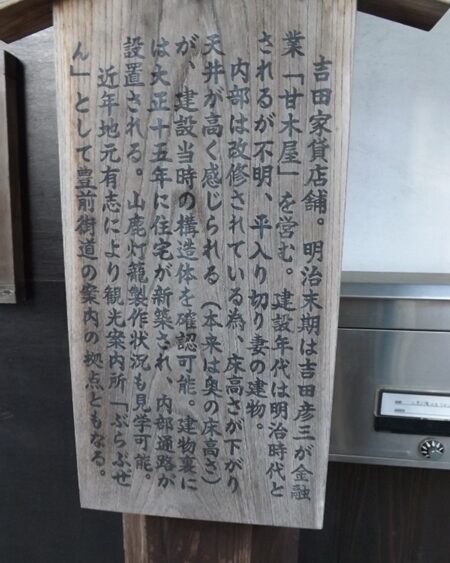 吉田家貸店舗。明治末期は吉田彦三が金融
業「甘木屋」を営む。建設年代は明治時代と
されるが不明、平入り切り妻の建物。
内部は改修されている為、床高さが下がり
天井が高く感じられる(本来は奥の床高さ)
が、建設当時の構造体を確認可能。建物裏に
は大正十五年に住宅が新築され、内部通路が
設置される。山鹿灯籠製作状況も見学可能。
近年地元有志により観光案内所「ぶらぶぜ
ん」として豊前街道の案内の拠点ともなる。